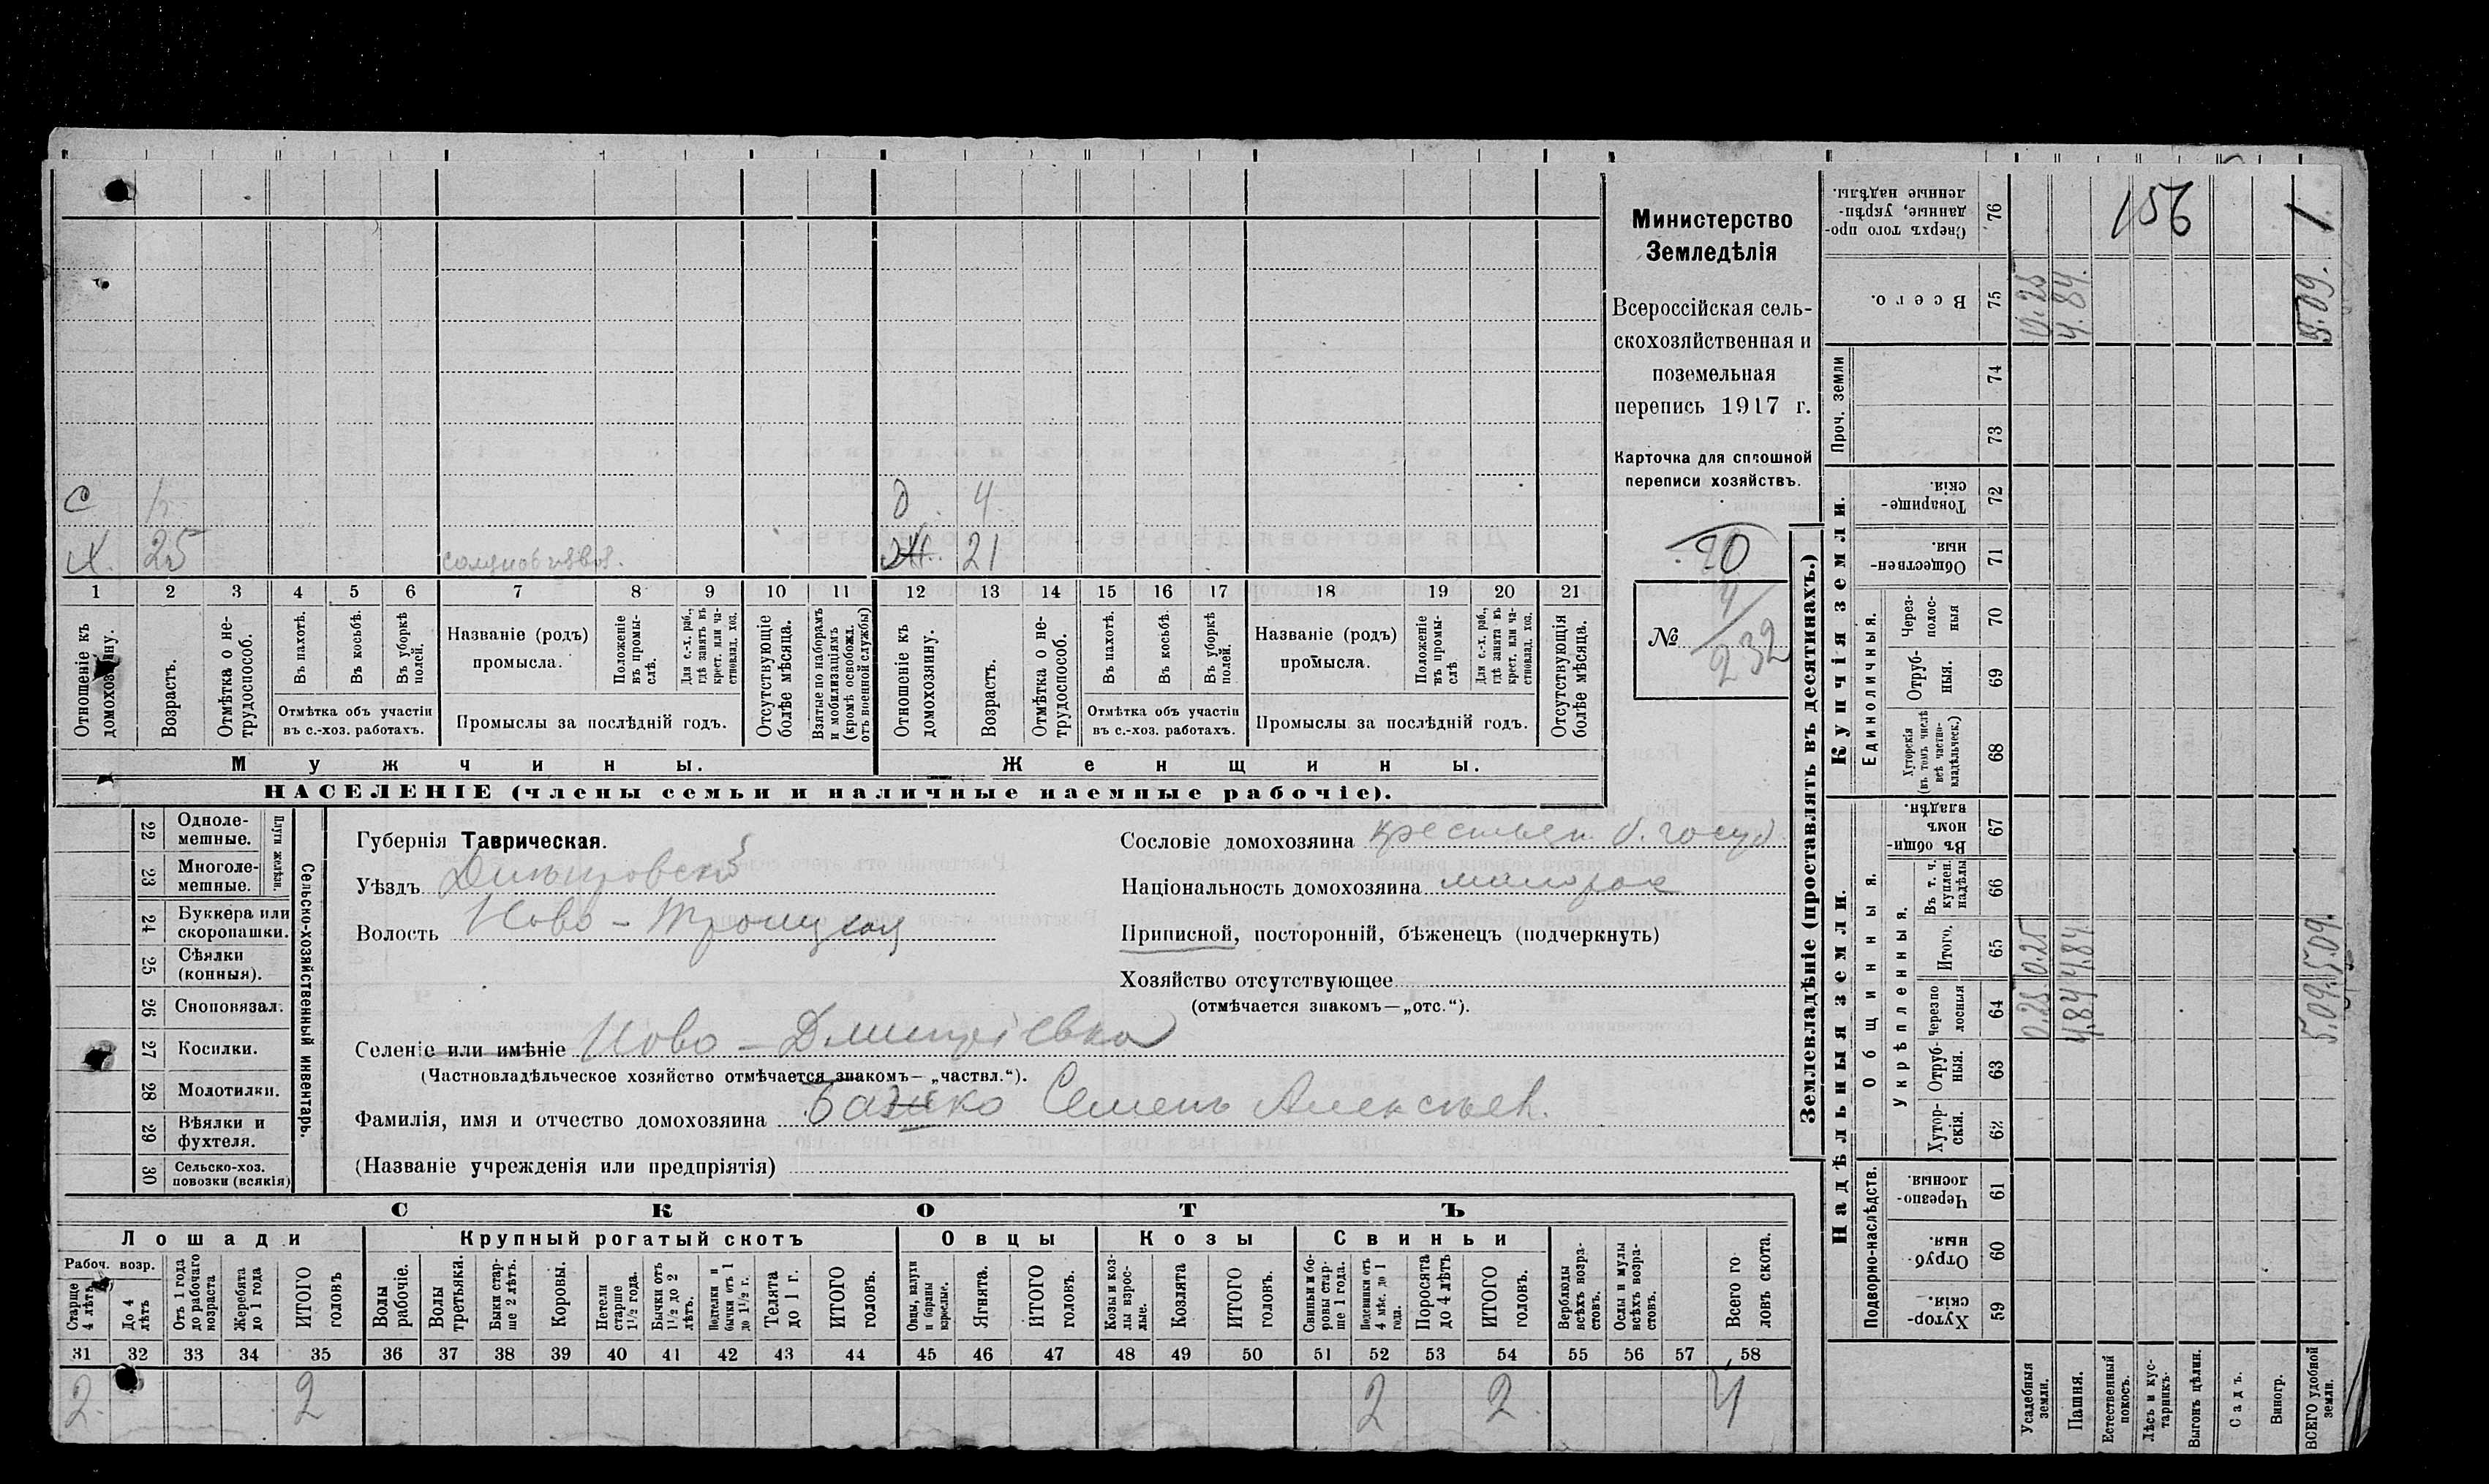 С
Д 4
Х. 25
Ж. 21
1 2 3 4 5 6 7 8 9 10 11 12 13 14 15 16 17 18 19 20 21
Отношеніе къ домохозяину.
Возрастъ.
Отмѣтка о не-трудоспособ.
Въ пахотѣ.
Въ косьбѣ.
Въ уборкѣ полей.
Отмѣтка объ участіи
въ с.-хоз. работахъ.
Названіе (родъ)
промысла.
Положеніе въ промы-слѣ.
Для с.-х. раб., гдѣ занятъ въ крест. или ча-стновлад. хоз.
Промыслы за послѣдній годъ.
Отсутствующіе болѣе мѣсяца.
Взятые по наборамъ и мобилизаціямъ (кромѣ освобожд. отъ военной службы)
Отношеніе къ домохозяину.
Возрастъ.
Отмѣтка о не-трудоспособ.
Въ пахотѣ.
Въ косьбѣ.
Въ уборкѣ полей.
Отмѣтка объ участіи
въ с.-хоз. работахъ.
Названіе (родъ)
промысла.
Положеніе въ промы-слѣ
Для с.-х. раб., гдѣ занята въ крест. или ча-стновлад. хоз.
Промыслы за послѣдній годъ.
Отсутствующія болѣе мѣсяца.
Мужчины.
Женщины.
НАСЕЛЕНІЕ (члены семьи и наличные наемные рабочіе).
Министерство
Земледѣлія
Всероссійская сель-
скохозяйственная и
поземельная
перепись 1917 г.
Карточка для сплошной
переписи хозяйствъ.
20
№ 4/232
22 Одноле-мешные.
23 Многоле-мешные.
Плуги желѣзн.
24 Буккера или скоропашки.
25 Сѣялки (конныя).
26 Сноповязал.
27 Косилки.
28 Молотилки.
29 Вѣялки и фухтеля.
30 Сельско-хоз. повозки (всякія)
Сельско-хозяйственный инвентарь.
Губернія Таврическая.
Уѣздъ Днѣпровскій
Волость Ново-Троицкая
Сословіе домохозяина крестьян. б. госуд.
Національность домохозяина малорос
Приписной, посторонній, бѣженецъ (подчеркнуть)
Хозяйство отсутствующее
(отмѣчается знакомъ—„отс.“).
Селеніе или имѣніе Ново-Дмитріевка
(Частновладѣльческое хозяйство отмѣчается знакомъ—„частвл.“).
Фамилія, имя и отчество домохозяина Бажко Семенъ Алексѣев.
(Названіе учрежденія или предпріятія)
СКОТЪ
Лошади
Крупный рогатый скотъ
Овцы
Козы
Свиньи
Рабоч. возр.
Старше 4 лѣтъ
До 4 лѣтъ
Отъ 1 года до рабочаго возраста
Жеребята до 1 года
ИТОГО головъ
Волы рабочіе.
Волы третьяка.
Быки стар-ше 2 лѣтъ.
Коровы.
Нетели старше 1½ года.
Бычки отъ 1½ до 2 лѣтъ.
Подтелки и бычки отъ 1 до 1½ г.
Телята до 1 г.
ИТОГО головъ.
Овцы, валухи и бараны взрослые.
Ягнята.
ИТОГО головъ.
Козы и коз-лы взрос-лые.
Козлята
ИТОГО головъ.
Свиньи и бо-ровы стар-ше 1 года.
Подсвинки отъ 4 мѣс. до 1 года.
Поросята до 4 лѣтъ
ИТОГО головъ.
Верблюды всѣхъ возра-стовъ.
Ослы и мулы всѣхъ возра-стовъ.
Всего го ловъ скота.
31 32 33 34 35 36 37 38 39 40 41 42 43 44 45 46 47 48 49 50 51 52 53 54 55 56 57 58
2 2 2 2 4
Землевладѣніе (проставлять въ десятинахъ.)
Надѣльныя земли.
Купчія земли.
Проч. земли
Подворно-наслѣдств.
Общинныя.
Укрѣпленныя.
Единоличныя.
Сверхъ того про-данные, укрѣп-ленные надѣлы. 76
Всего. 75
74
73
Товарище-скія. 72
Обществен-ныя. 71
Через-полос-ныя 70
Отруб-ныя. 69
Хуторскія (въ томъ числѣ всѣ частно-владѣльческ.) 68
Въ общи-номъ владѣн. 67
Въ т. ч. куплен. надѣлы 66
Итого. 65
Черезпо лосныя 64
Отруб-ныя. 63
Хутор-скія. 62
Черезпо-лосныя. 61
Отруб-ныя. 60
Хутор-скія. 59
156
1
0.25 4.84 5.09.
0.25 4.84 5.09.
0.25 4.84 5.09.
Усадебныя земли.
Пашня.
Естественный покосъ.
Лѣсъ и кус-тарникъ.
Выгонъ цѣлин.
Садъ.
Виногр.
ВСЕГО удобной земли.